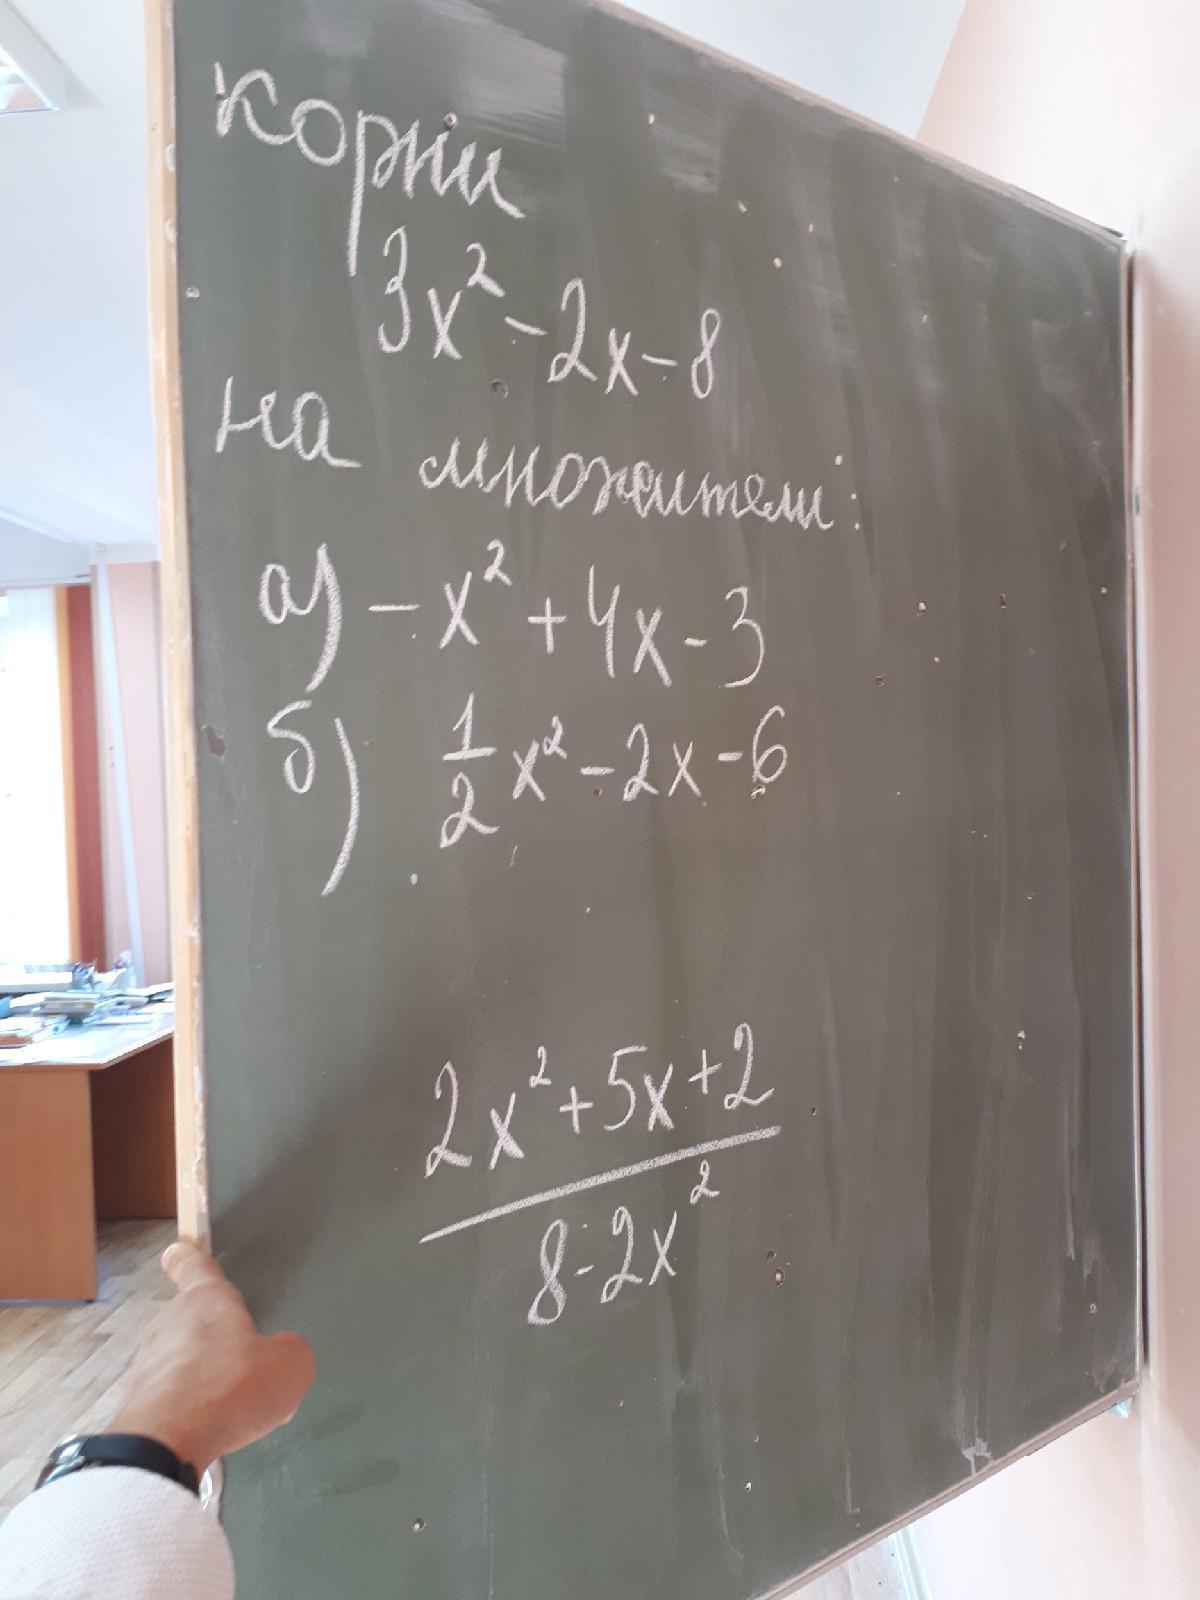 корни
3x² - 2x - 8
на множители:
а) - x² + 4x - 3
б) 1/2 x² - 2x - 6
2x² + 5x + 2
8 - 2x²